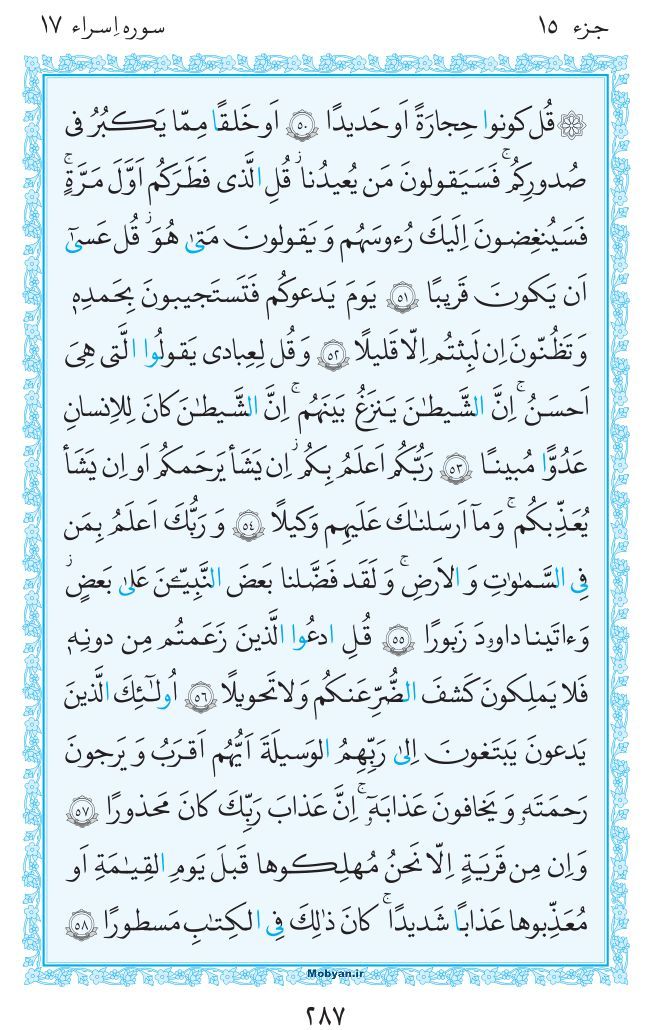 جزء ۱۵
سوره اِسراء ۱۷
۞ قُل كونوا حِجارَةً اَو حَديدًا ﴿۵۰﴾ اَو خَلقًا مِمّا يَكبُرُ فى
صُدورِكُم ۚ فَسَيَقولونَ مَن يُعيدُنا ۖ قُلِ الَّذى فَطَرَكُم اَوَّلَ مَرَّةٍ ۚ
فَسَيُنغِضونَ اِلَيكَ رُءوسَهُم و يَقولونَ مَتىٰ هُوَ ۖ قُل عَسىٰٓ
اَن يَكونَ قَريبًا ﴿۵۱﴾ يَومَ يَدعوكُم فَتَستَجيبونَ بِحَمدِهٖ
وَ تَظُنّونَ اِن لَبِثتُم اِلّا قَليلًا ﴿۵۲﴾ وَ قُل لِعِبادى يَقولُوا الَّتى هِىَ
اَحسَنُ ۚ اِنَّ الشَّيطٰنَ يَنزَغُ بَينَهُم ۚ اِنَّ الشَّيطٰنَ كانَ لِلاِنسانِ
عَدُوًّا مُبينًا ﴿۵۳﴾ رَبُّكُم اَعلَمُ بِكُم ۖ اِن يَشَأ يَرحَمكُم اَو اِن يَشَأ
يُعَذِّبكُم ۚ وَ مآ اَرسَلنٰكَ عَلَيهِم وَكيلًا ﴿۵۴﴾ وَ رَبُّكَ اَعلَمُ بِمَن
فِى السَّمٰوٰتِ وَ الاَرضِ ۗ وَ لَقَد فَضَّلنا بَعضَ النَّبِيّٖنَ عَلىٰ بَعضٍ ۖ
وَ ءاتَينا داوۥدَ زَبورًا ﴿۵۵﴾ قُلِ ادعُوا الَّذينَ زَعَمتُم مِن دونِهٖ
فَلا يَملِكونَ كَشفَ الضُّرِّ عَنكُم وَ لا تَحويلًا ﴿۵۶﴾ اُولٰٓئِكَ الَّذينَ
يَدعونَ يَبتَغونَ اِلىٰ رَبِّهِمُ الوَسيلَةَ اَيُّهُم اَقرَبُ وَ يَرجونَ
رَحمَتَهۥ وَ يَخافونَ عَذابَهۥٓ ۚ اِنَّ عَذابَ رَبِّكَ كانَ مَحذورًا ﴿۵۷﴾
وَ اِن مِن قَريَةٍ اِلّا نَحنُ مُهلِكوها قَبلَ يَومِ القِيٰمَةِ اَو
مُعَذِّبوها عَذابًا شَديدًا ۚ كانَ ذٰلِكَ فِى الكِتٰبِ مَسطورًا ﴿۵۸﴾
Mobyan.ir
۲۸۷